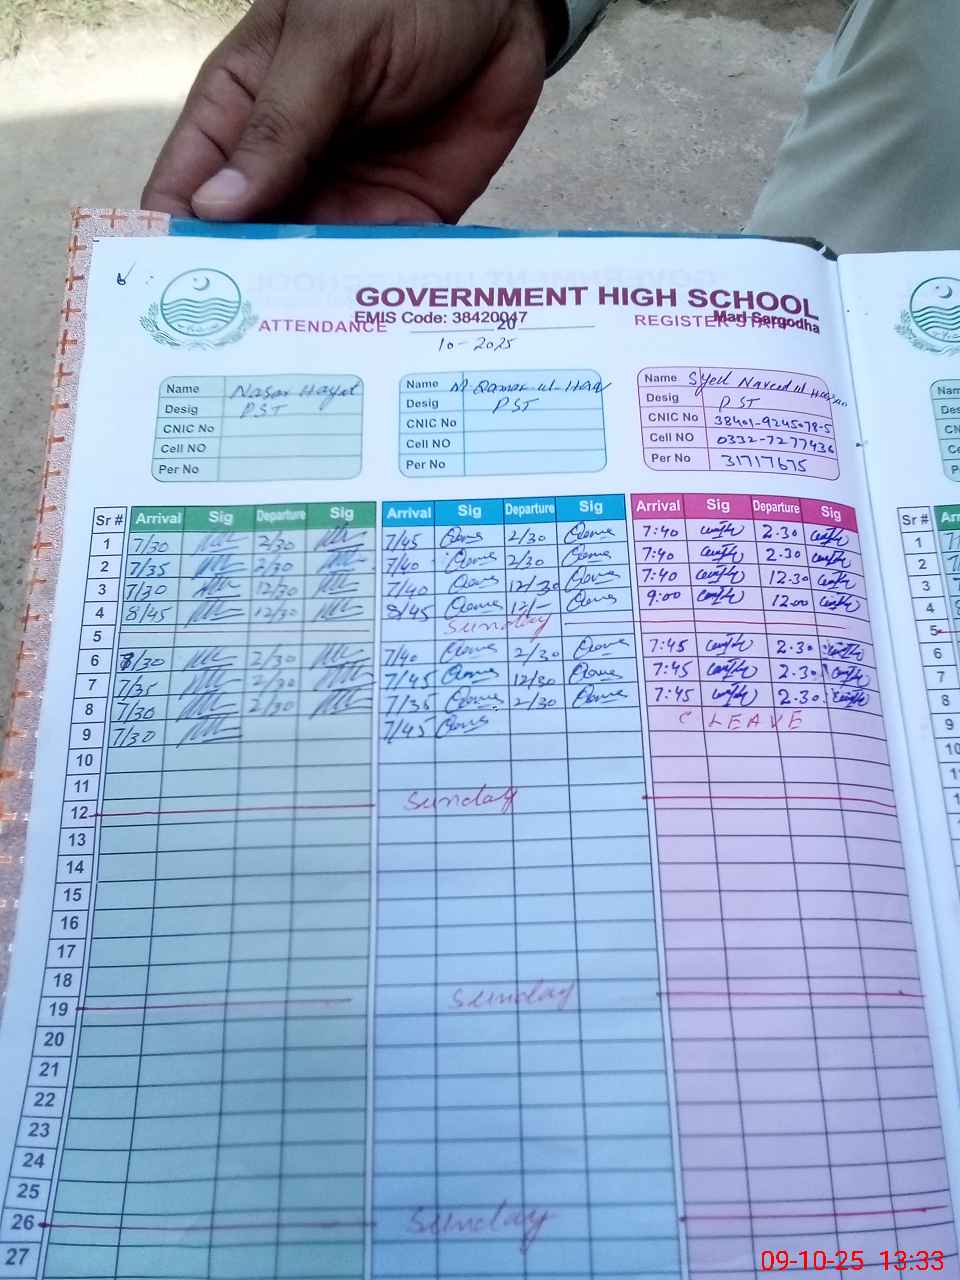 GOVERNMENT HIGH SCHOOL
EMIS Code: 38420047 Mari Sargodha
ATTENDANCE 20 REGISTER STAFF
10-2025
Name Nasar Hayat Name M Qamar ul Haq Name Syed Naveed ul Hassan
Desig PST Desig PST Desig PST
CNIC No CNIC No CNIC No 38401-9245078-5
Cell NO Cell NO Cell NO 0332-7277436
Per No Per No Per No 31717675
Sr # Arrival Sig Departure Sig Arrival Sig Departure Sig Arrival Sig Departure Sig Sr #
1 7/30 2/30 7/45 2/30 7:40 2.30 1
2 7/35 2/30 7/40 2/30 7:40 2.30 2
3 7/30 12/30 7/40 12/30 7:40 12.30 3
4 8/45 12/30 8/45 12/- 9:00 12.00 4
5 Sunday 5
6 7/30 2/30 7/40 2/30 7:45 2.30 6
7 7/35 2/30 7/45 12/30 7:45 2.30 7
8 7/30 2/30 7/35 2/30 7:45 2.30 8
9 7/30 7/45 C LEAVE 9
10
11
12 Sunday
13
14
15
16
17
18
19 Sunday
20
21
22
23
24
25
26 Sunday
27
09-10-25 13:33